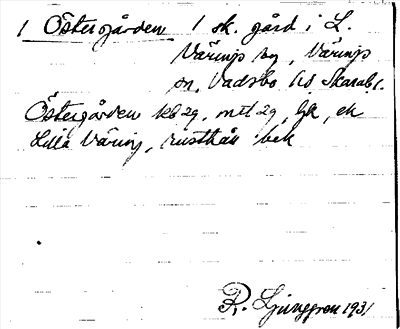 1 Östergården 1 sk. gård i L.
Värings by, Värings
sn, Vadsbo hd Skarab l.
Östergården kb 29, mtl 29, gk, ek
Lilla Väring, rusthåll bek
R. Ljunggren 1931